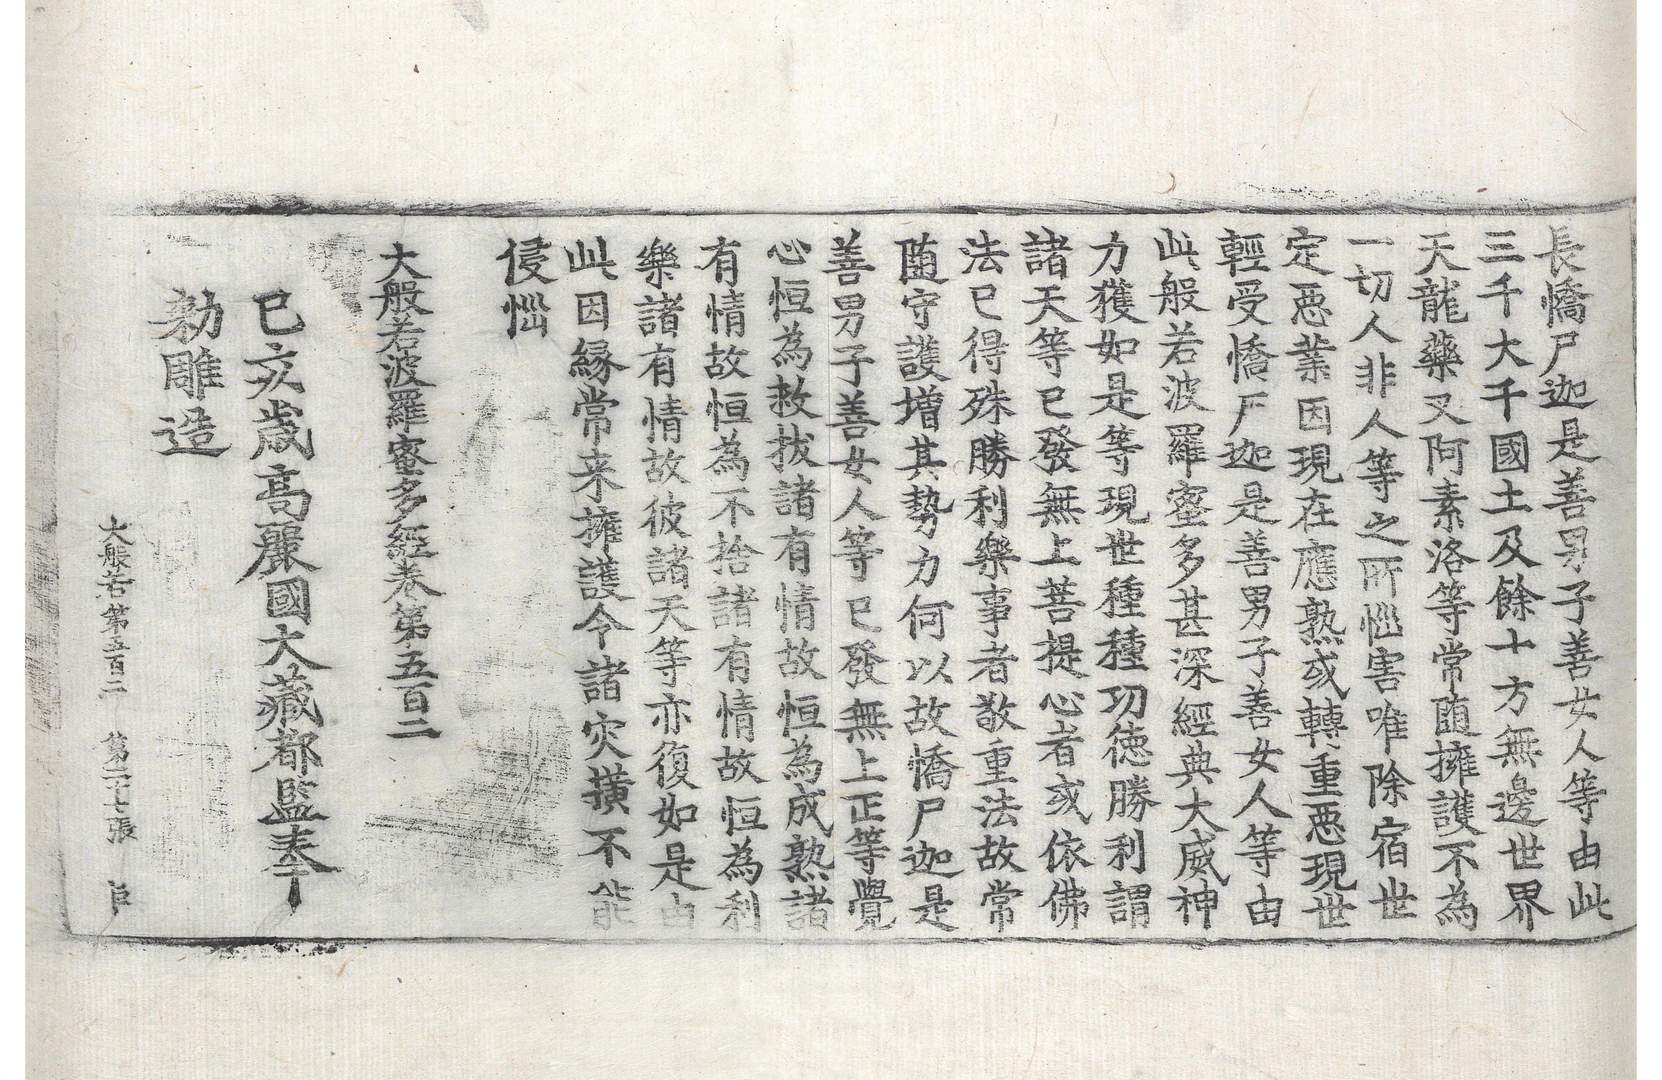 長憍尸迦是善男子善女人等由此
三千大千國土及餘十方無邊世界
天龍藥叉阿素洛等常隨擁護不為
一切人非人等之所惱害唯除宿世
定惡業因現在應熟或轉重惡現世
輕受憍尸迦是善男子善女人等由
此般若波羅蜜多甚深經典大威神
力獲如是等現世種種功德勝利謂
諸天等已發無上菩提心者或依佛
法已得殊勝利樂事者敬重法故常
隨守護增其勢力何以故憍尸迦是
善男子善女人等已發無上正等覺
心恒為救拔諸有情故恒為成熟諸
有情故恒為不捨諸有情故恒為利
樂諸有情故彼諸天等亦復如是由
此因緣常来擁護令諸災橫不能
侵惱
大般若波羅蜜多經卷第五百二
已亥歲高麗國大藏都監奉
勑雕造
大般若第五百二 第二十七張 臣